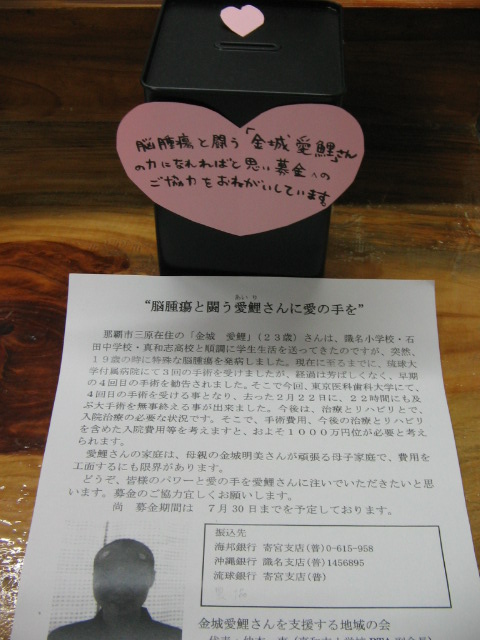 脳腫瘍と闘う「金城 愛鯉」さん
の力になれればと思い募金への
ご協力をおねがいしています。
“脳腫瘍と闘う愛鯉さんに愛の手を”
あいり
那覇市三原在住の「金城 愛鯉」(23歳)さんは、識名小学校・石
田中学校・真和志高校と順調に学生生活を送ってきたのですが、突然、
19歳の時に特殊な脳腫瘍を発病しました。現在に至るまでに、琉球大
学付属病院にて3回の手術を受けましたが、経過は芳ばしくなく、早期
の4回目の手術を勧告されました。そこで今回、東京医科歯科大学にて、
4回目の手術を受ける事となり、去った2月22日に、22時間にも及
ぶ大手術を無事終える事が出来ました。今後は、治療とリハビリとで、
入院治療の必要な状況です。そこで、手術費用、今後の治療とリハビリ
を含めた入院費用等を考えますと、およそ1000万円位が必要と考え
られます。
愛鯉さんの家庭は、母親の金城明美さんが頑張る母子家庭で、費用を
工面するにも限界があります。
どうぞ、皆様のパワーと愛の手を愛鯉さんに注いでいただきたいと思
います。募金のご協力宜しくお願いします。
尚 募金期間は 7月30日までを予定しております。
振込先
海邦銀行 寄宮支店(普)0-615-958
沖縄銀行 識名支店(普)1456895
琉球銀行 寄宮支店(普)
金城愛鯉さんを支援する地域の会